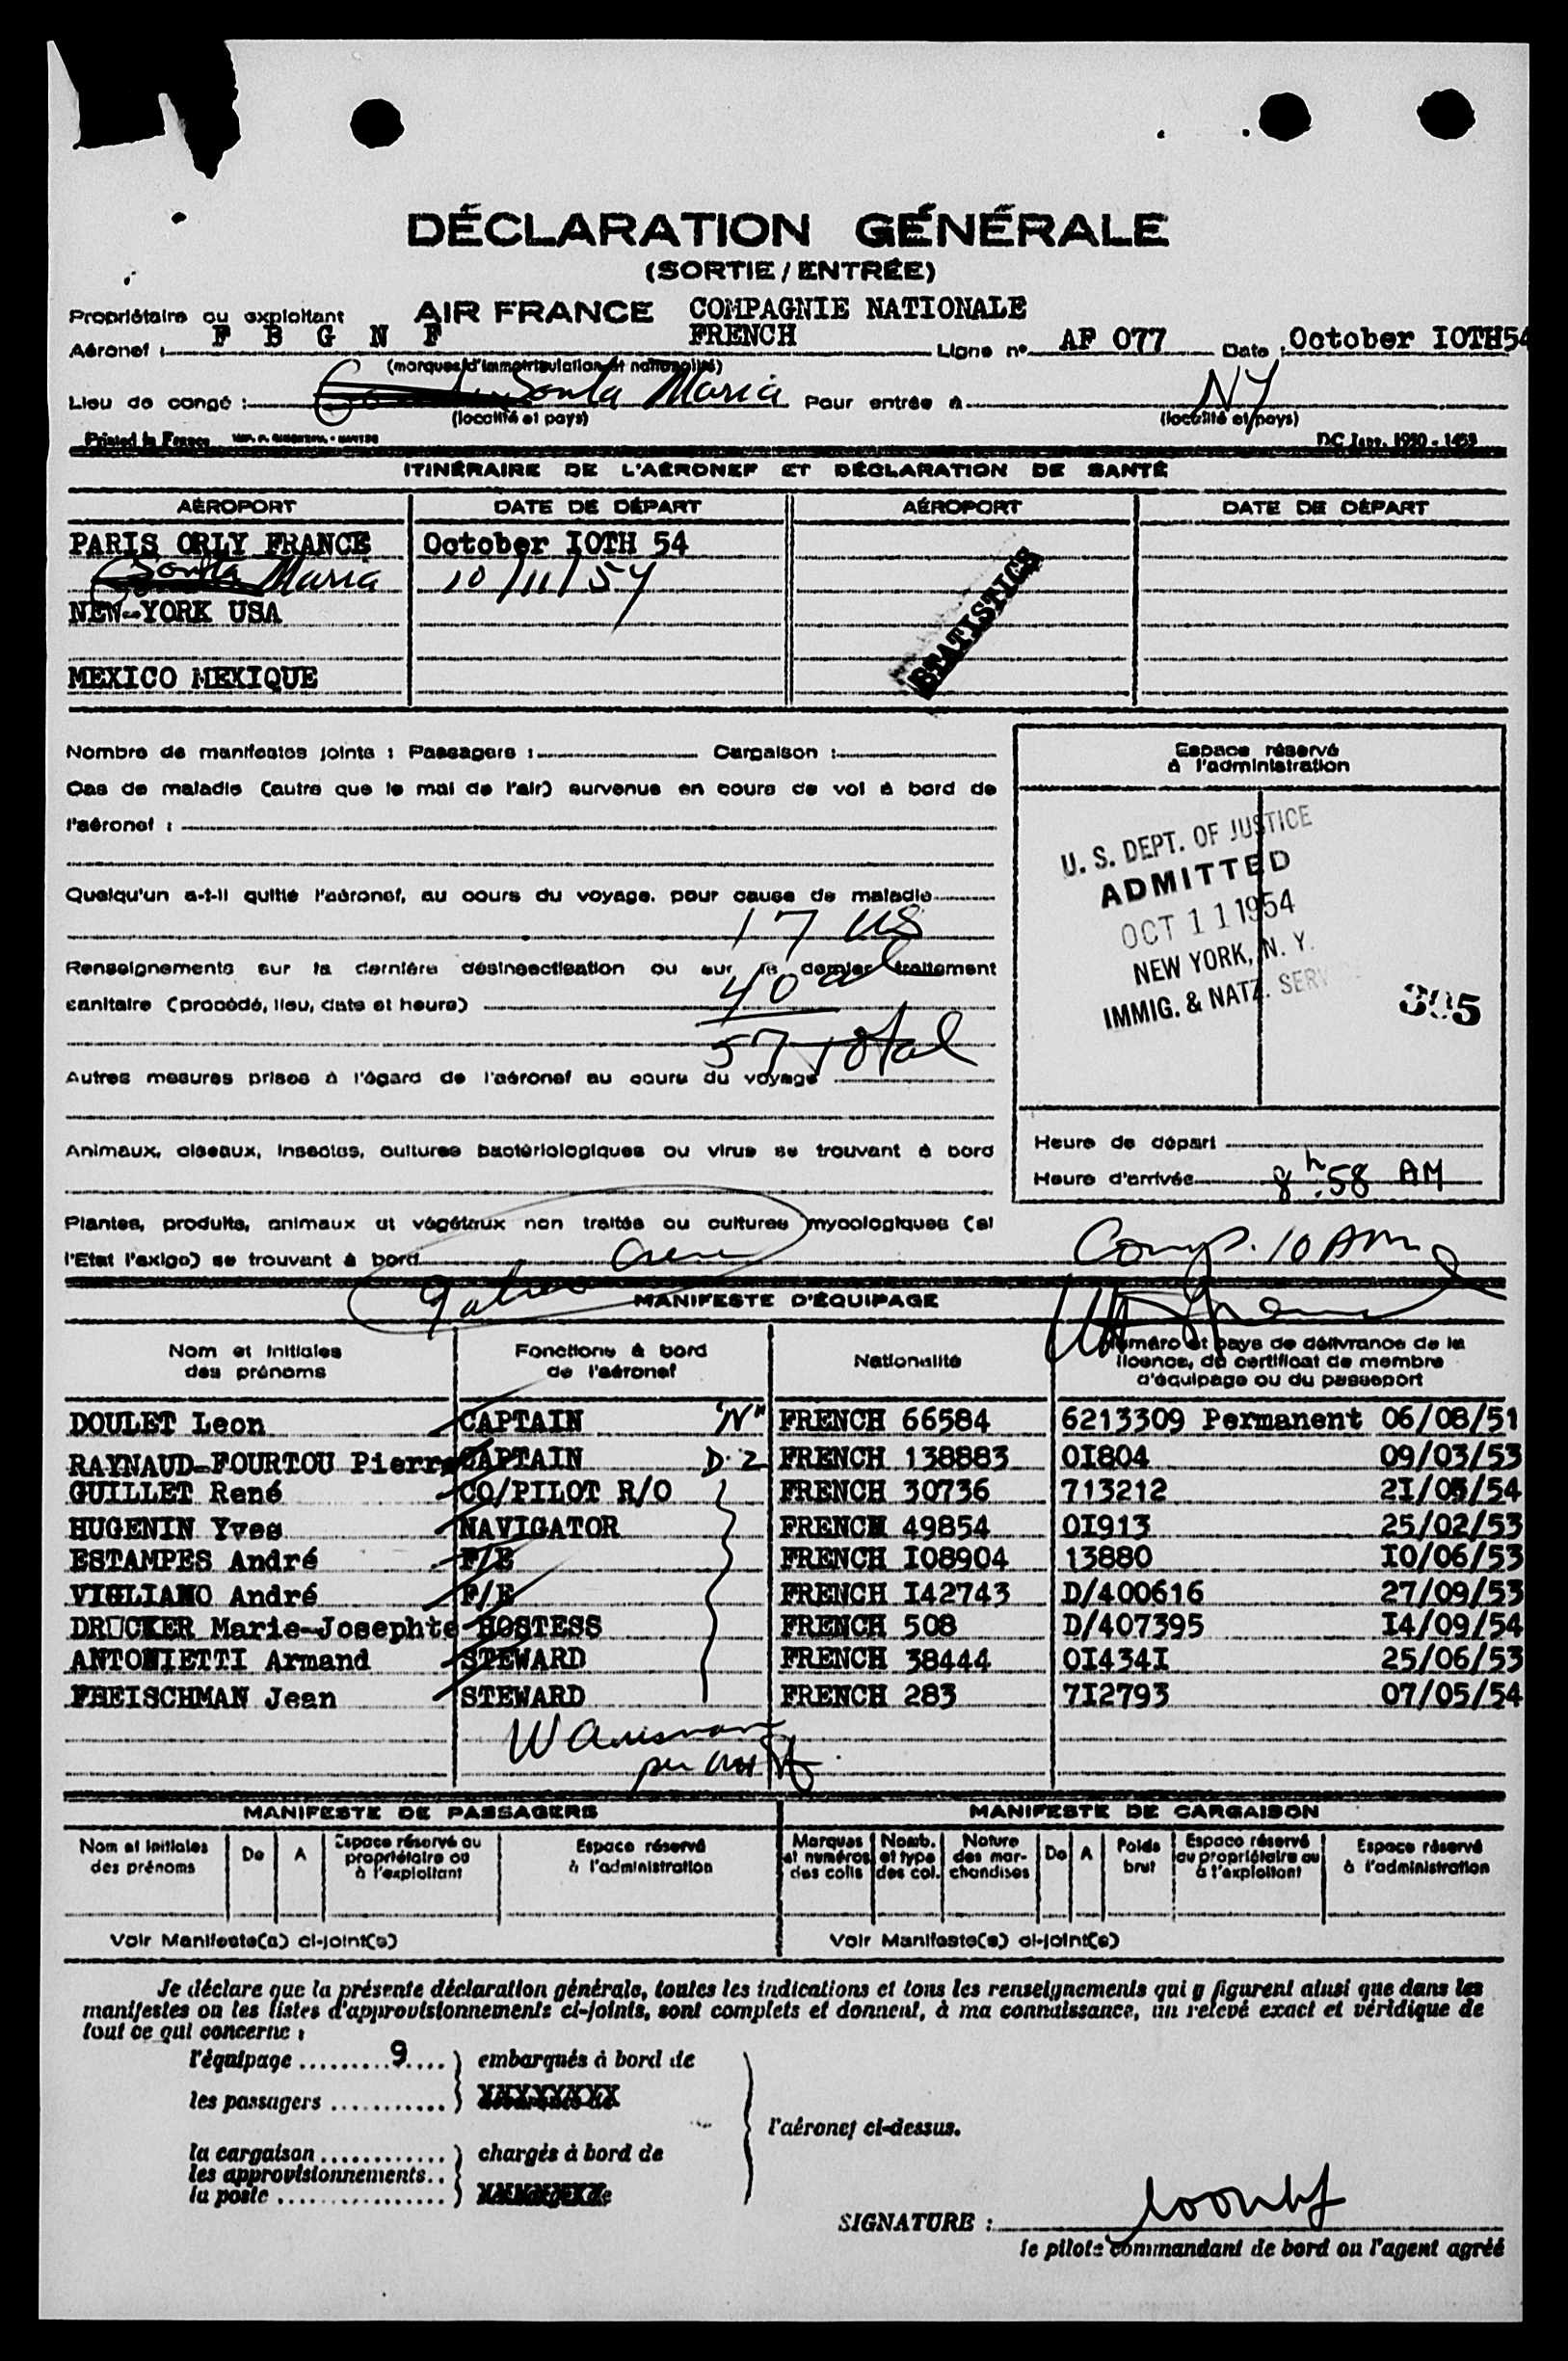 DÉCLARATION GÉNÉRALE
(SORTIE / ENTRÉE)
Propriétaire ou exploitant AIR FRANCE COMPAGNIE NATIONALE
Aéronef : F B G N F FRENCH Ligne n° AF 077 Date : October IOTH54
(marques d'immatriculation et nationalité)
Lieu de congé : Santa Maria Pour entrée à NY
(localité et pays) (localité et pays)
Printed in France
ITINÉRAIRE DE L'AÉRONEF ET DÉCLARATION DE SANTÉ
AÉROPORT DATE DE DÉPART AÉROPORT DATE DE DÉPART
PARIS ORLY FRANCE October IOTH 54
Santa Maria 10/11/54
NEW-YORK USA
STATISTICS
MEXICO MEXIQUE
Nombre de manifestes joints : Passagers : Cargaison :
Cas de maladie (autre que le mal de l'air) survenus en cours de vol à bord de
l'aéronef :
Quelqu'un a-t-il quitté l'aéronef, au cours du voyage, pour cause de maladie
17 US
Renseignements sur la dernière désinsectisation ou sur le dernier traitement
sanitaire (procédé, lieu, date et heure)
40 al
57 Total
Autres mesures prises à l'égard de l'aéronef au cours du voyage
Animaux, oiseaux, insectes, cultures bactériologiques ou virus se trouvant à bord
Plantes, produits, animaux et végétaux non traités ou cultures mycologiques (si
l'Etat l'exige) se trouvant à bord
Espace réservé
à l'administration
U. S. DEPT. OF JUSTICE
ADMITTED
OCT 11 1954
NEW YORK, N. Y.
IMMIG. & NATZ. SERV
Heure de départ
Heure d'arrivée 8h.58 AM
Comp. 10 AM
MANIFESTE D'ÉQUIPAGE
Nom et initiales des prénoms
Fonctions à bord de l'aéronef
Nationalité
Numéro et pays de délivrance de la licence, du certificat de membre d'équipage ou du passeport
DOULET Leon CAPTAIN "N" FRENCH 66584 6213309 Permanent 06/08/51
RAYNAUD-FOURTOU Pierre CAPTAIN D-2 FRENCH 138883 OI804 09/03/53
GUILLET René CO/PILOT R/O FRENCH 30736 713212 21/05/54
HUGENIN Yves NAVIGATOR FRENCH 49854 OI913 25/02/53
ESTAMPES André F/E FRENCH I08904 13880 I0/06/53
VIGLIANO André F/E FRENCH I42743 D/400616 27/09/53
DRUCKER Marie-Josephte HOSTESS FRENCH 508 D/407395 I4/09/54
ANTONIETTI Armand STEWARD FRENCH 38444 OI434I 25/06/53
FHEISCHMAN Jean STEWARD FRENCH 283 7I2793 07/05/54
MANIFESTE DE PASSAGERS MANIFESTE DE CARGAISON
Nom et initiales des prénoms
De
A
Espace réservé au propriétaire ou à l'exploitant
Espace réservé à l'administration
Marques et numéros des colis
Nomb. et type des col.
Nature des marchandises
De
A
Poids brut
Espace réservé au propriétaire ou à l'exploitant
Espace réservé à l'administration
Voir Manifeste(s) ci-joint(s) Voir Manifeste(s) ci-joint(s)
Je déclare que la présente déclaration générale, toutes les indications et tous les renseignements qui y figurent ainsi que dans les
manifestes ou les listes d'approvisionnements ci-joints, sont complets et donnent, à ma connaissance, un relevé exact et véridique de
tout ce qui concerne :
l'équipage 9 embarqués à bord de
les passagers
l'aéronef ci-dessus.
la cargaison chargés à bord de
les approvisionnements
la poste
SIGNATURE :
le pilote commandant de bord ou l'agent agréé